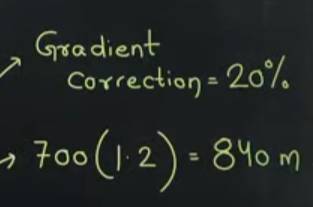 → Gradient
Correction = 20%
→ 700(1.2) = 840 m